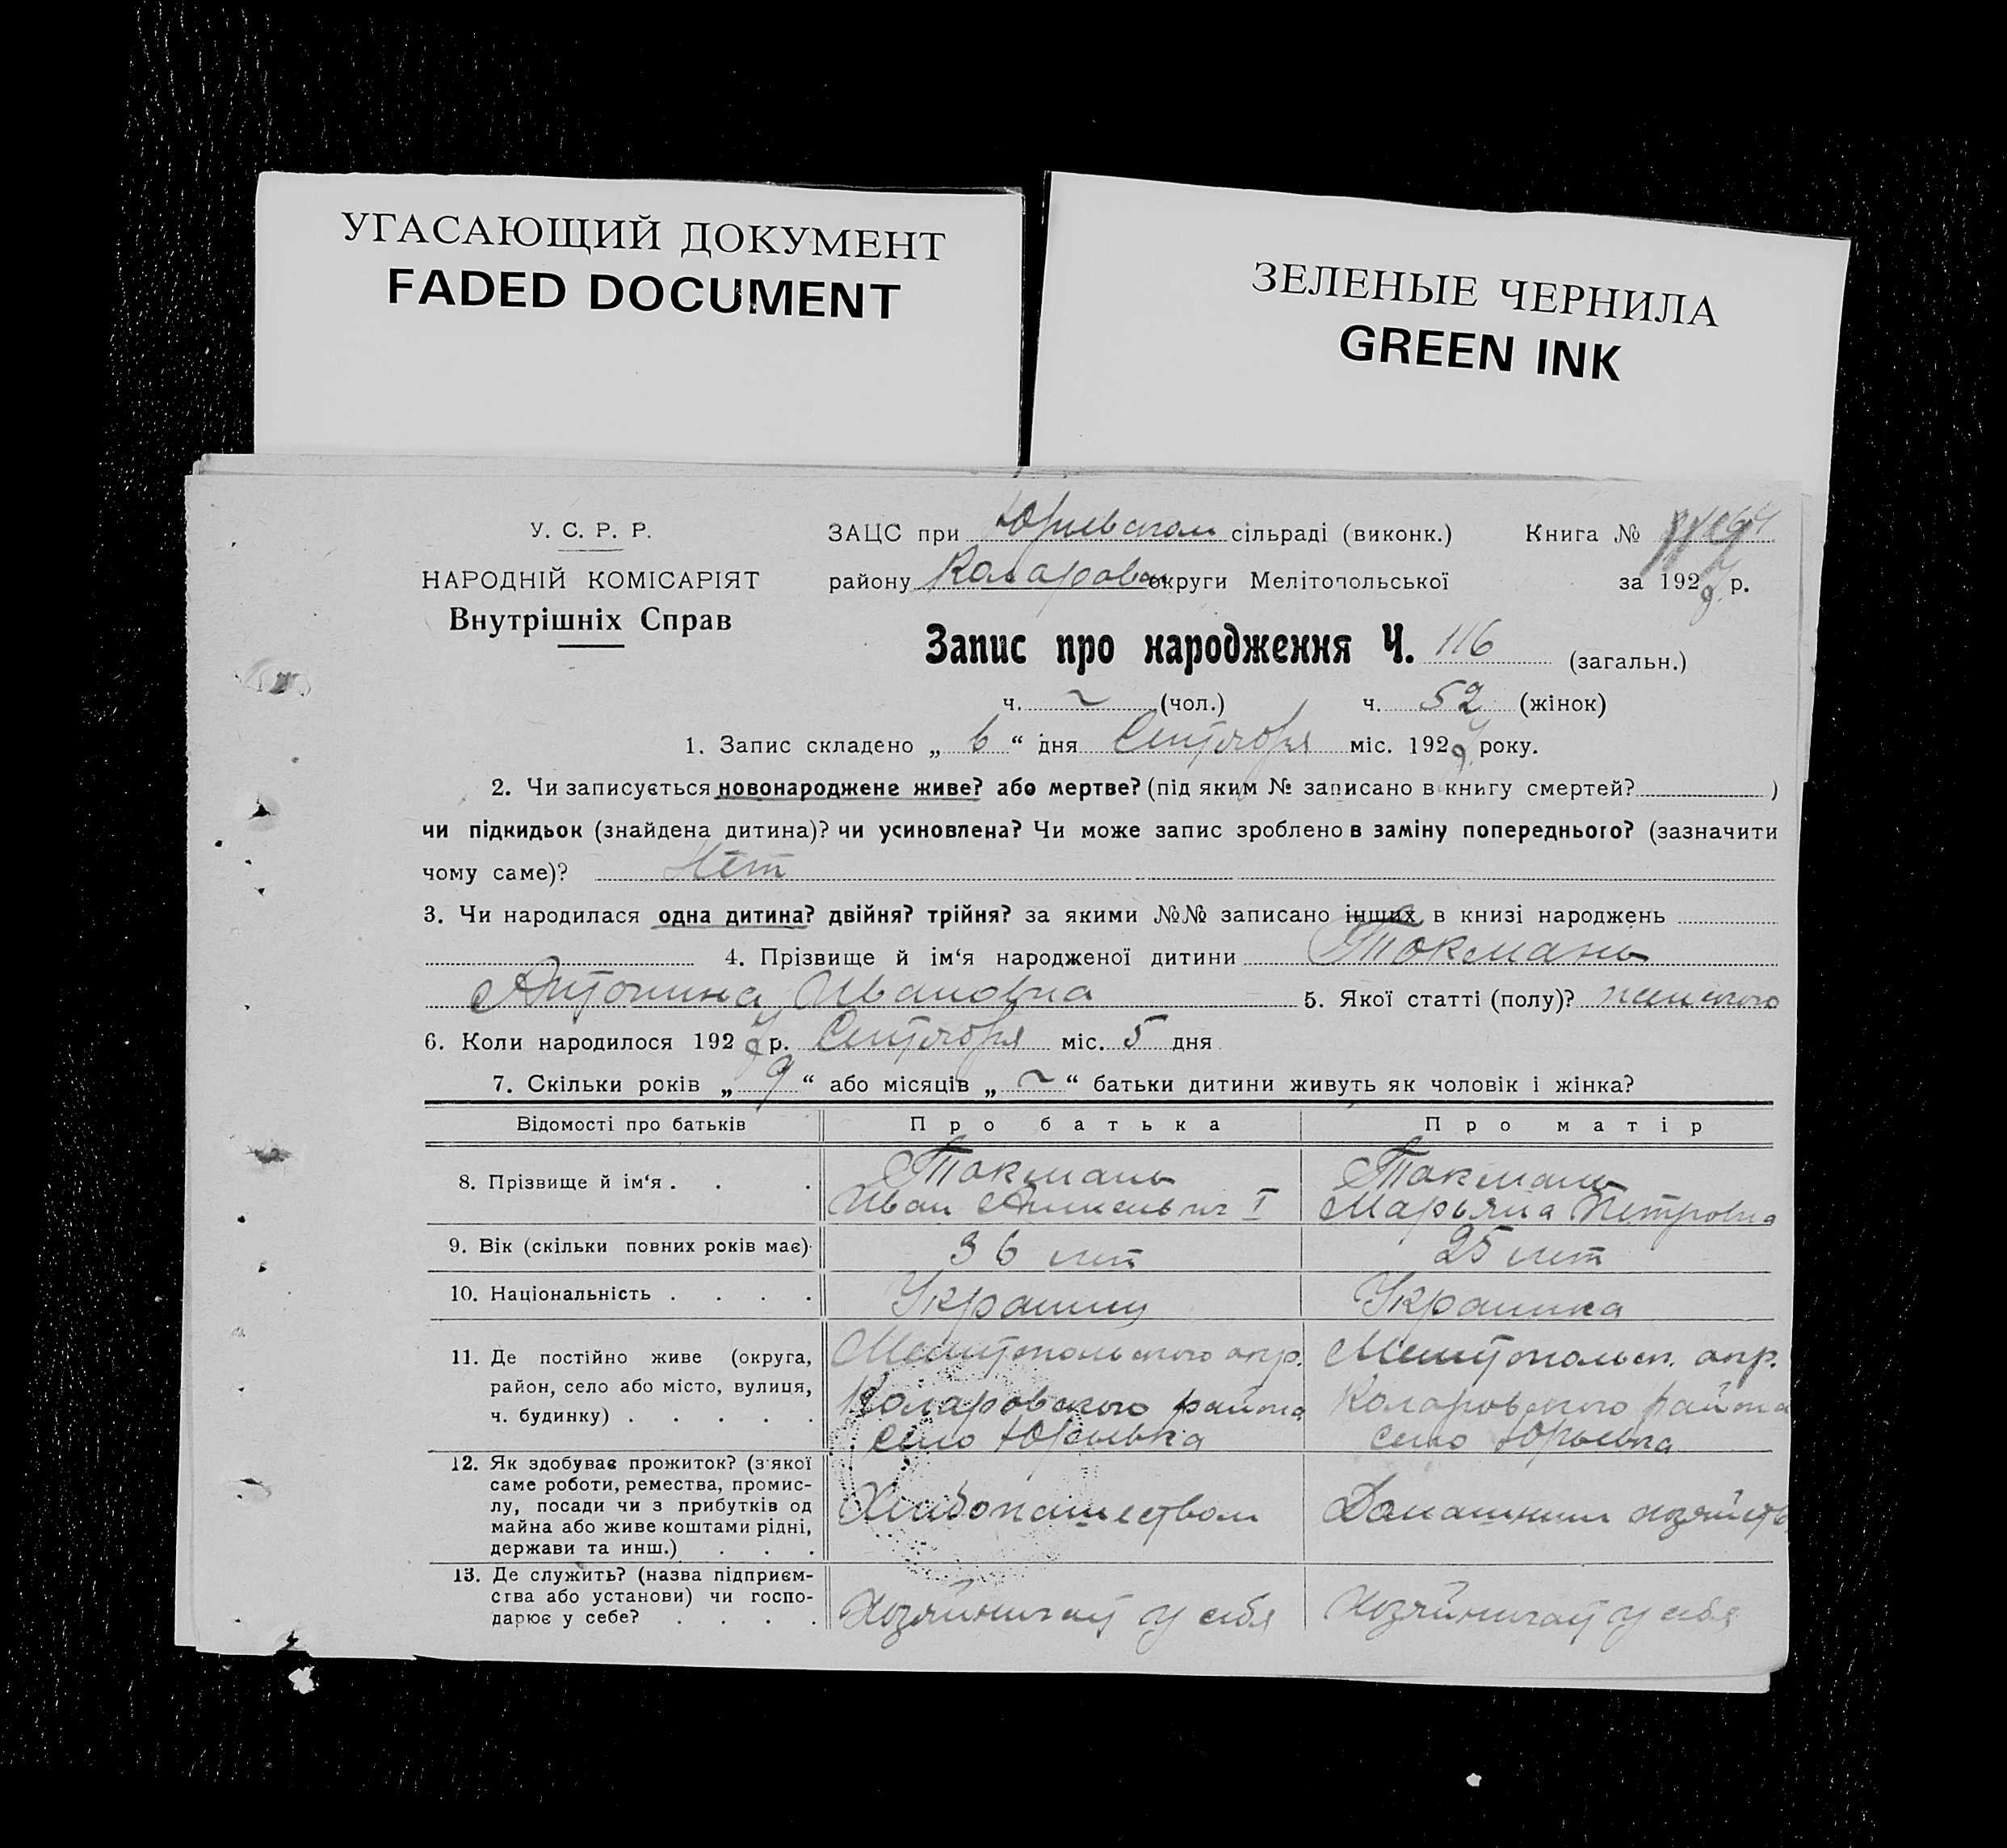 УГАСАЮЩИЙ ДОКУМЕНТ
FADED DOCUMENT
ЗЕЛЕНЫЕ ЧЕРНИЛА
GREEN INK
У. С. Р. Р.
НАРОДНІЙ КОМІСАРІЯТ
Внутрішніх Справ
ЗАЦС при Юрьевском сільраді (виконк.) Книга №
району Коларовск округи Мелітопольської за 1929 р.
Запис про народження Ч. 116 (загальн.)
ч. ~ (чол.) ч. 52 (жінок)
1. Запис складено „ 6 “ дня Сентября міс. 1929 року.
2. Чи записується новонароджене живе? або мертве? (під яким № записано в книгу смертей? )
чи підкидьок (знайдена дитина)? чи усиновлена? Чи може запис зроблено в заміну попереднього? (зазначити
чому саме)? Нет
3. Чи народилася одна дитина? двійня? трійня? за якими №№ записано інших в книзі народжень
4. Прізвище й ім‘я народженої дитини Токмань
Антонина Ивановна 5. Якої статті (полу)? женского
6. Коли народилося 1929 р. Сентября міс. 5 дня
7. Скільки років „ 9 “ або місяців „ ~ “ батьки дитини живуть як чоловік і жінка?
Відомості про батьків Про батька Про матір
8. Прізвище й ім‘я . . . Токмань Токмань
Иван I Марьяна Петровна
9. Вік (скільки повних років має) 36 лет 25 лет
10. Національність . . . . Украинец Украинка
11. Де постійно живе (округа, Мелитопольского окр. Мелитопольск. окр.
район, село або місто, вулиця, Коларовского района Коларовского района
ч. будинку) . . . . . село Юрьевка село Юрьевка
12. Як здобуває прожиток? (з'якої
саме роботи, ремества, промис-
лу, посади чи з прибутків од Хлебопашеством Домашним хозяйств
майна або живе коштами рідні,
держави та инш.) . . .
13. Де служить? (назва підприєм-
ства або установи) чи госпо- Хозяйничает у себя Хозяйничает у себя
дарює у себе? . . . .